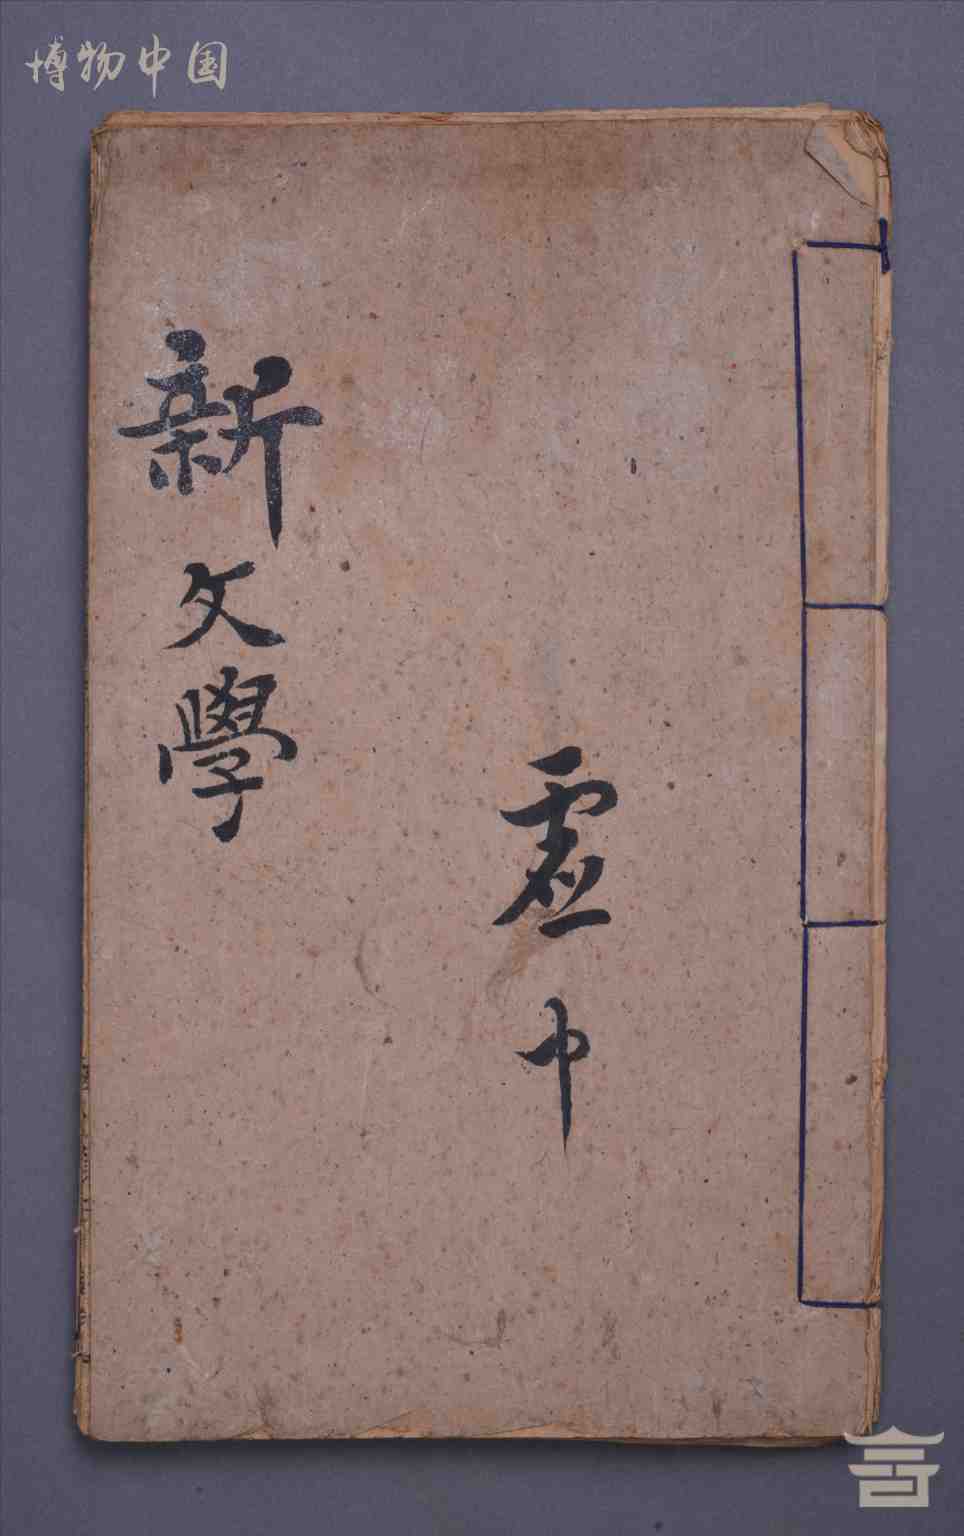 博物中国
新文學
虛中